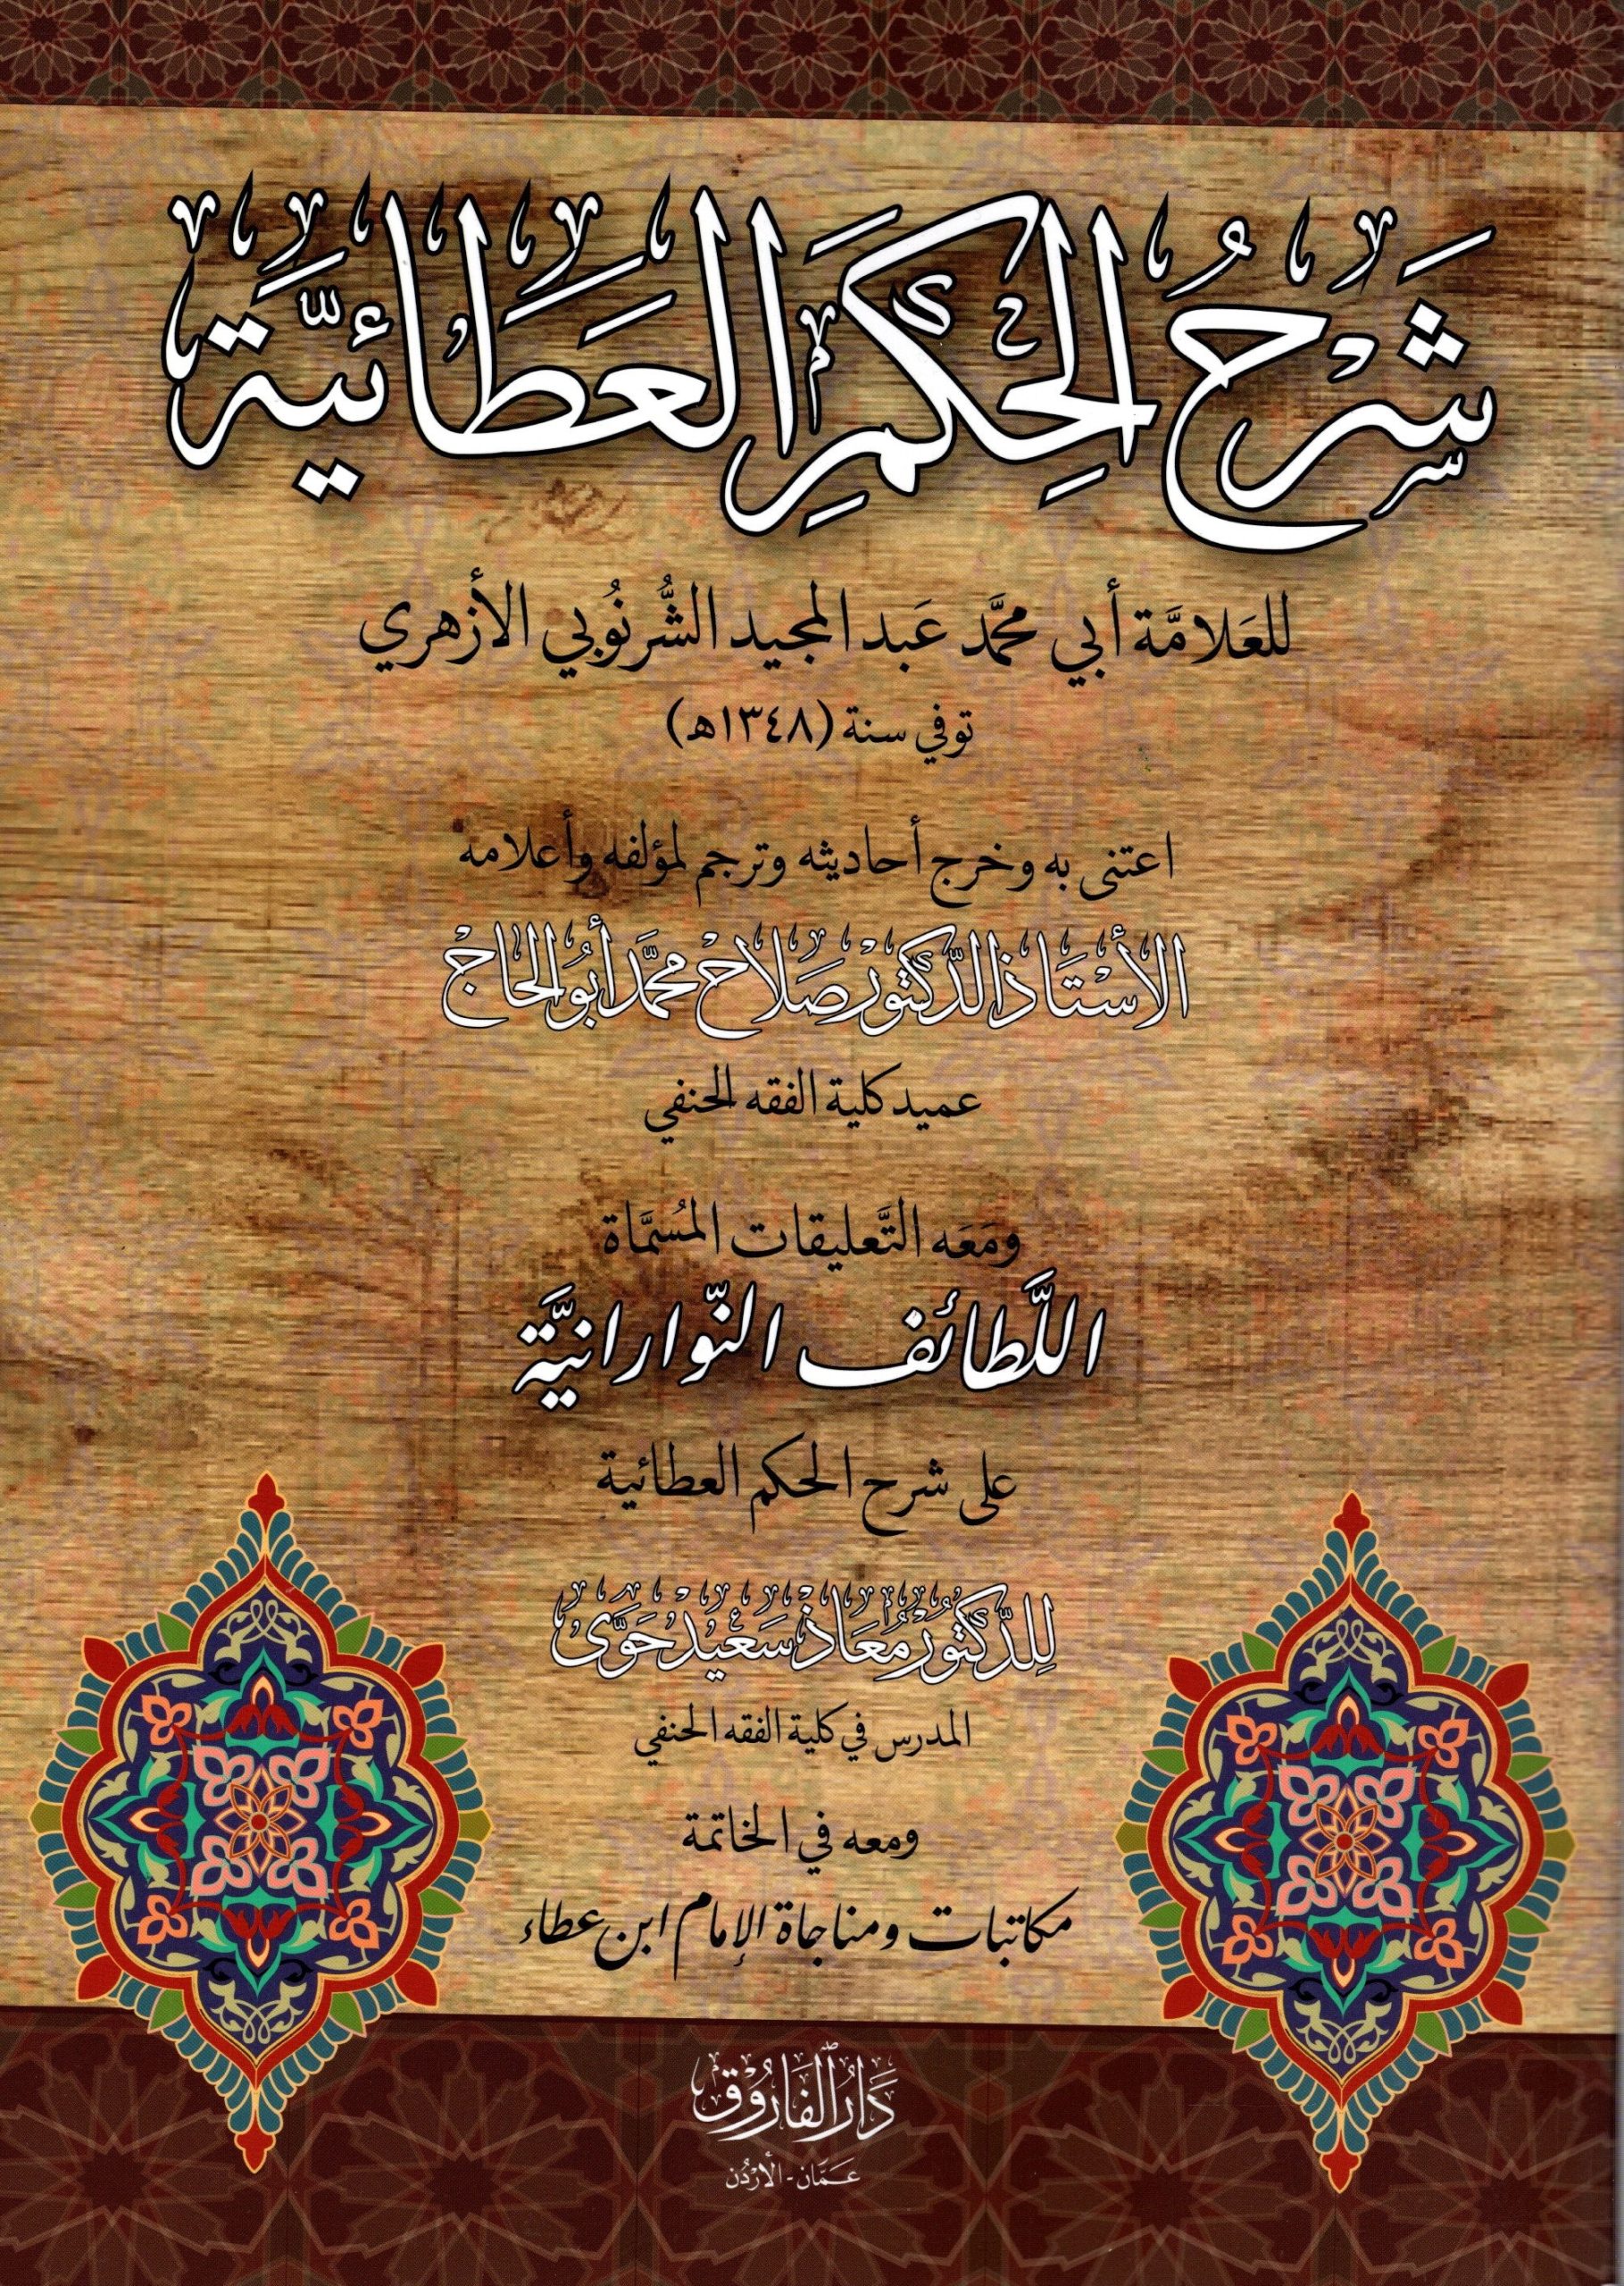 شَرْحُ الحِكَمِ العَطَائِيَّة
للعَلامَّة أبي محمَّد عَبد المجيد الشُّرنُوبي الأزهري
توفي سنة (١٣٤٨هـ)
اعتنى به وخرج أحاديثه وترجم لمؤلفه وأعلامه
الأسْتَاذ الدّكتُور صَلَاح محمَّد أبُو الحَاج
عميد كلية الفقه الحنفي
ومَعَه التَّعليقات المُسمَّاة
اللَّطائف النّوارانيَّة
على شرح الحكم العطائية
لِلدّكتُور مُعَاذ سَعيْد حَوَّى
المدرس في كلية الفقه الحنفي
ومعه في الخاتمة
مكاتبات ومناجاة الإمام ابن عطاء
دَارُ الفَارُوْق
عَمَّان - الأُرْدُن